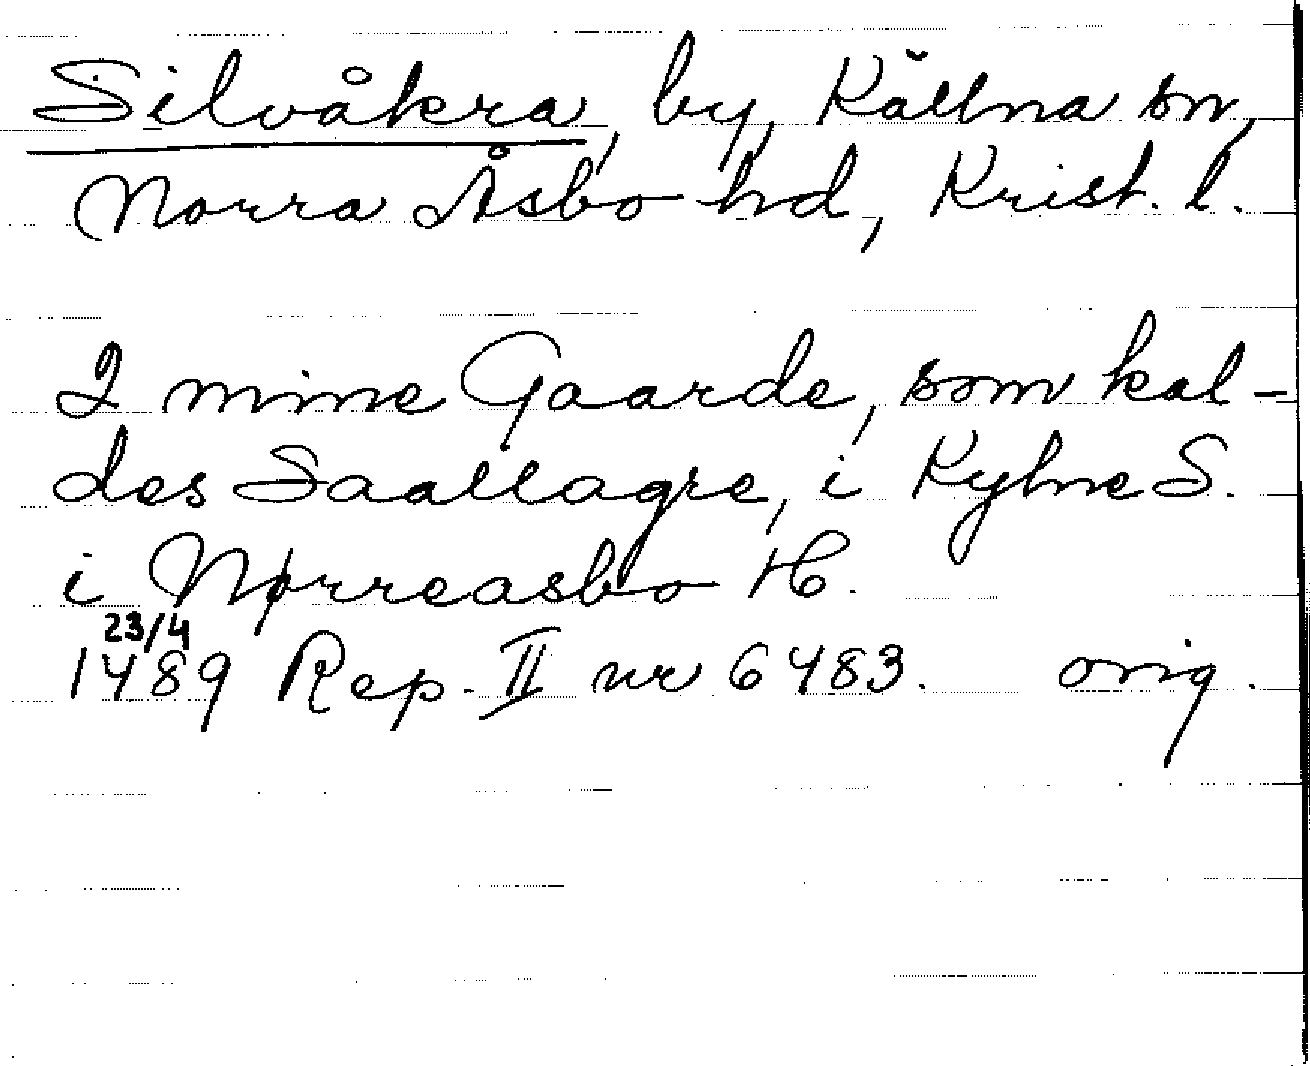 Silvåkra, by, Källna sn,
Norra Åsbo hd, Krist. l.
I mine Gaarde, som kal-
des Saallagre, i Kylne S.
i Nørreasbo H.
23/4
1489 Rep. II nr 6483. orig.